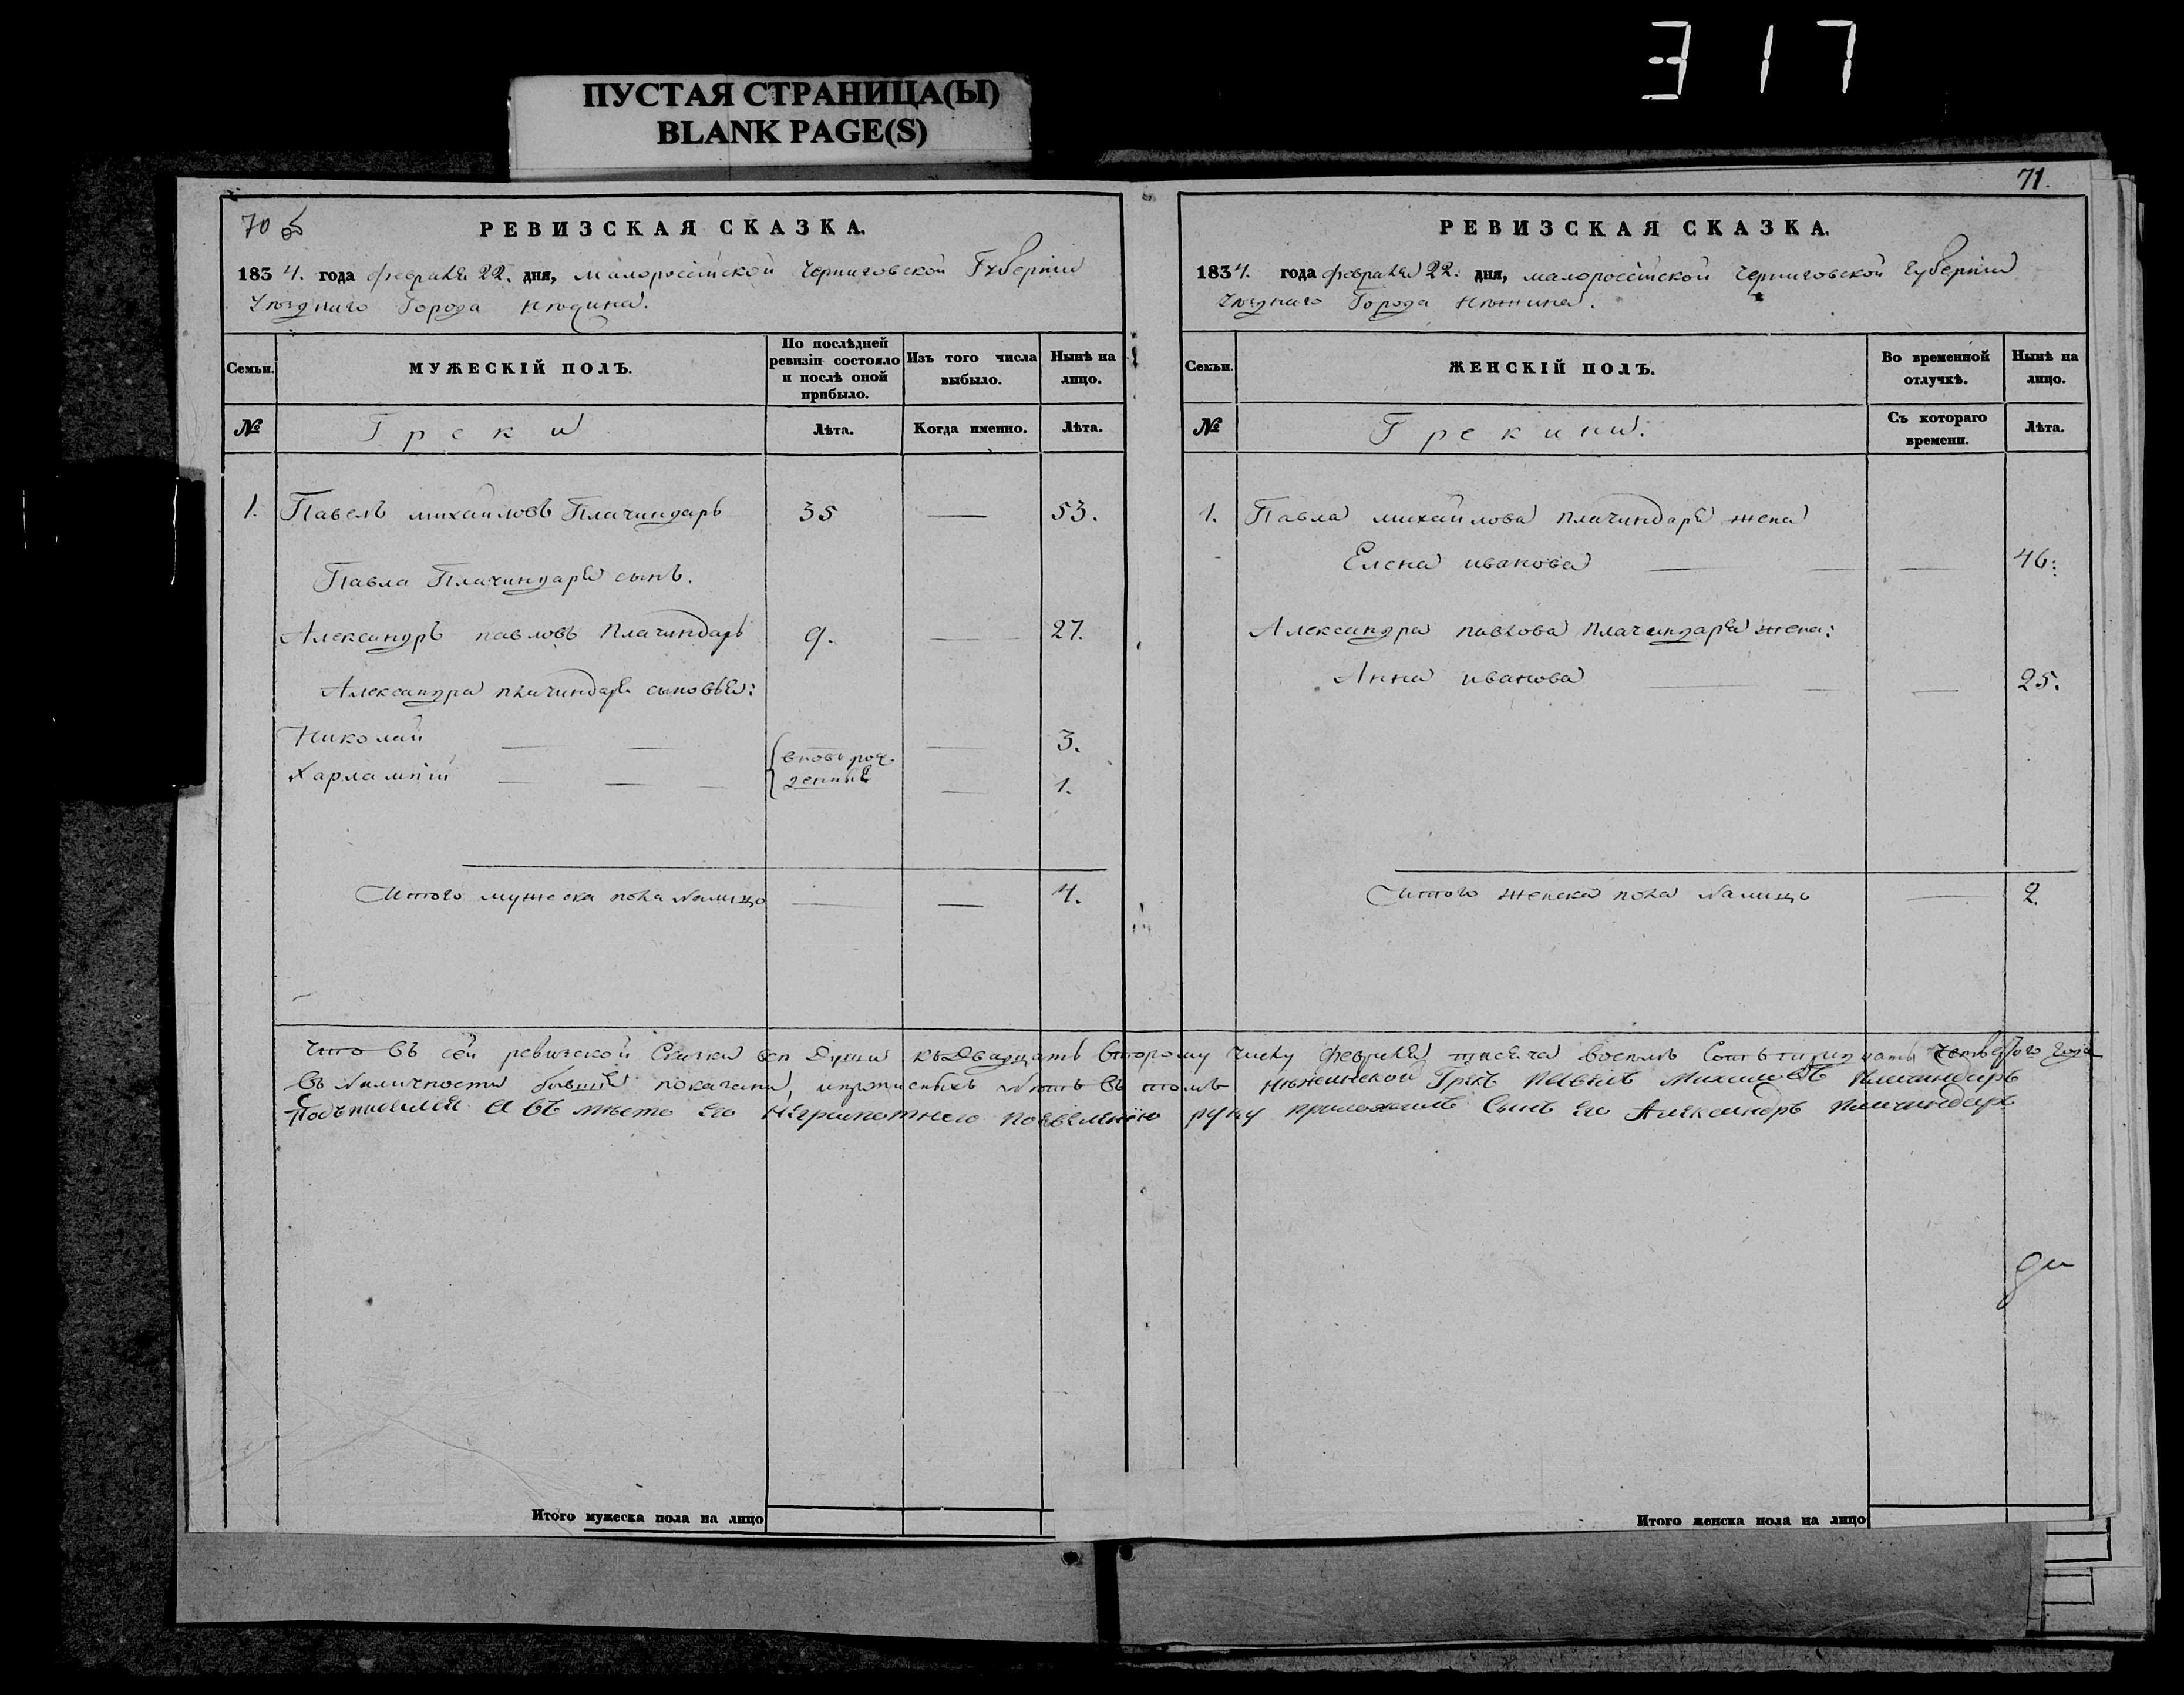 317
ПУСТАЯ СТРАНИЦА(Ы)
BLANK PAGE(S)
70 об
РЕВИЗСКАЯ СКАЗКА.
1834. года февраля 22. дня, малоросійской Черниговской Губерніи
Уѣзднаго Города Нѣжина.
Семьи.
МУЖЕСКІЙ ПОЛЪ.
По послѣдней ревизіи состояло и послѣ оной прибыло.
Изъ того числа выбыло.
Нынѣ на лицо.
№
Греки
Лѣта.
Когда именно.
Лѣта.
1. Павелъ михайловъ Плачиндарь 35 — 53.
Павла Плачиндаря сынъ.
Александръ павловъ Плачиндарь 9. — 27.
Александра плачиндаря сыновья:
Николай — — {вновь рож- — 3.
Харлампій — — — денные — 1.
Итого мужеска пола налицо — — 4.
Итого мужеска пола на лицо
71.
РЕВИЗСКАЯ СКАЗКА.
1834. года февраля 22. дня, малоросійской Черниговской губерніи
Уѣзднаго Города Нѣжина.
Семьи.
ЖЕНСКІЙ ПОЛЪ.
Во временной отлучкѣ.
Нынѣ на лицо.
№
Грекини.
Съ котораго времени.
Лѣта.
1. Павла михайлова плачиндаря жена
Елена иванова — — — 46:
Александра павлова плачиндаря жена:
Анна иванова — — — 25.
Итого женска пола налицо — 2.
Что въ сей ревизской Сказки всѣ Души къ Двадцать второму числу февраля тысяча восемь Сотъ тридцать четвертого года
въ Наличности бывшія показаны, нѣтъ въ томъ Нѣжинской Грекъ Павелъ Михайловъ Плачиндарь
Подъписался А въ мѣсто его Неграмотнаго повелѣнію руку приложилъ Сынъ его Александръ Плачиндарь
Итого женска пола на лицо